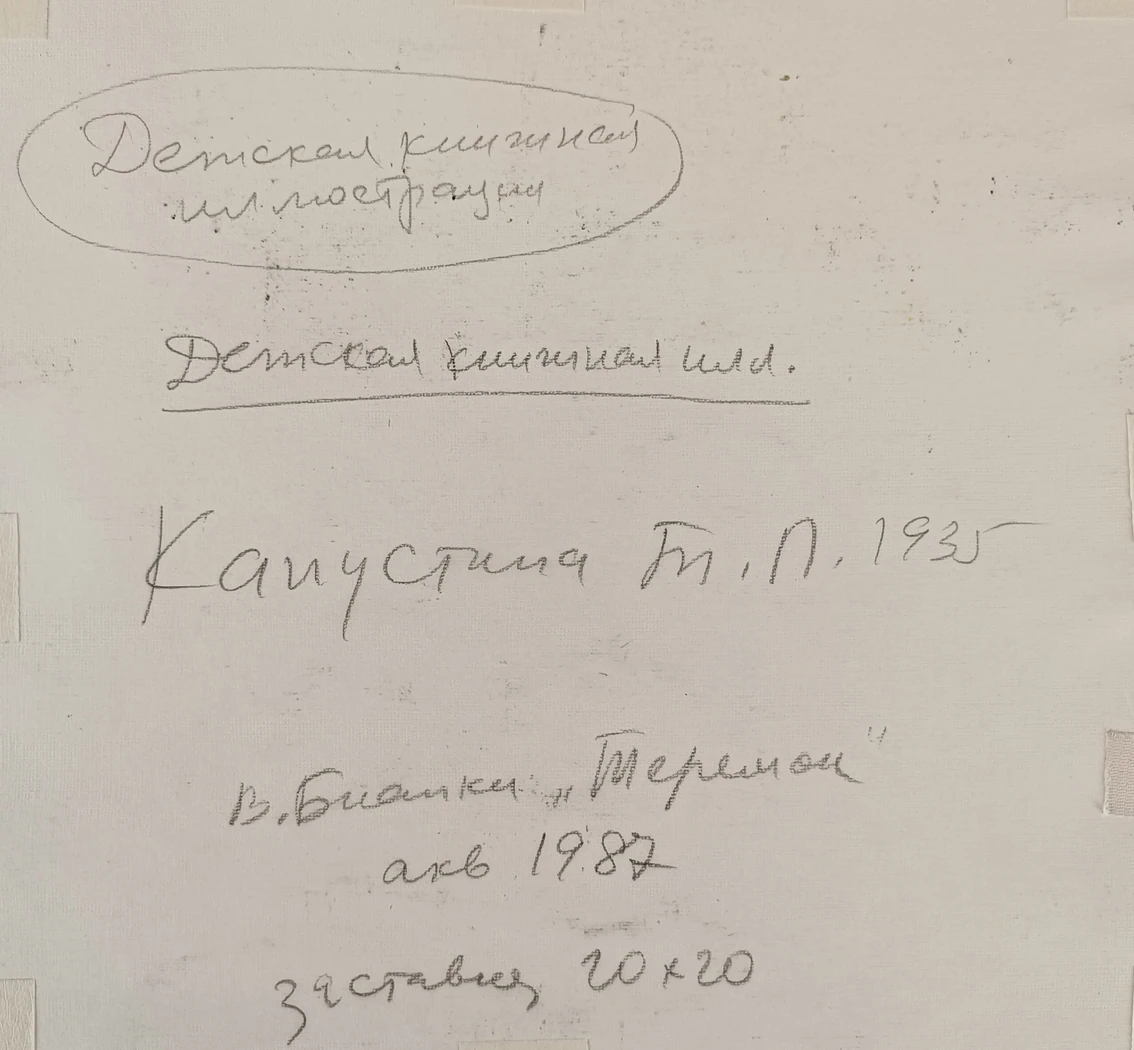 Детская книжная
иллюстрация
Детская книжная илл.
Капустина Т.П. 1935
В. Бианки „Теремок"
акв 1987
заставка 20х20